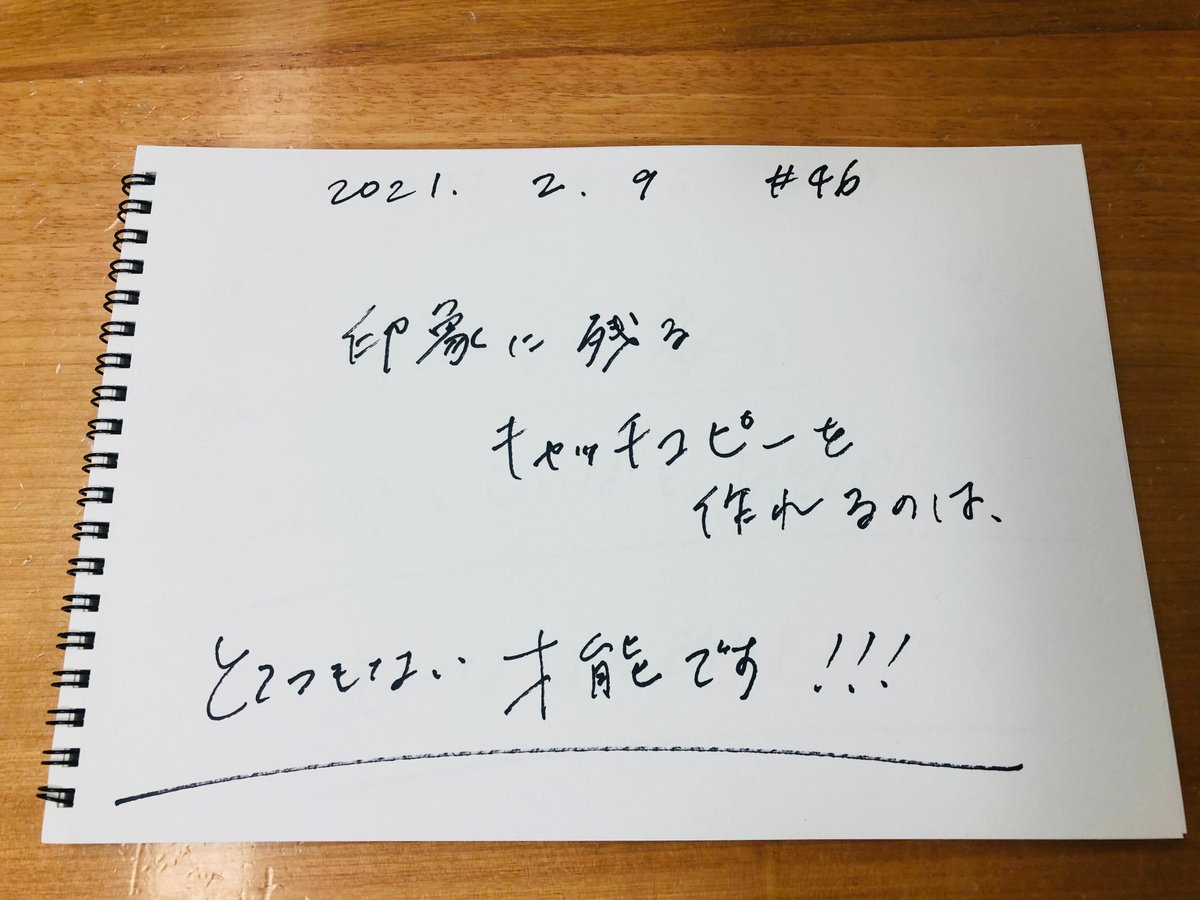 2021. 2. 9 #46
印象に残る
キャッチコピーを
作れるのは、
とてつもない才能です!!!